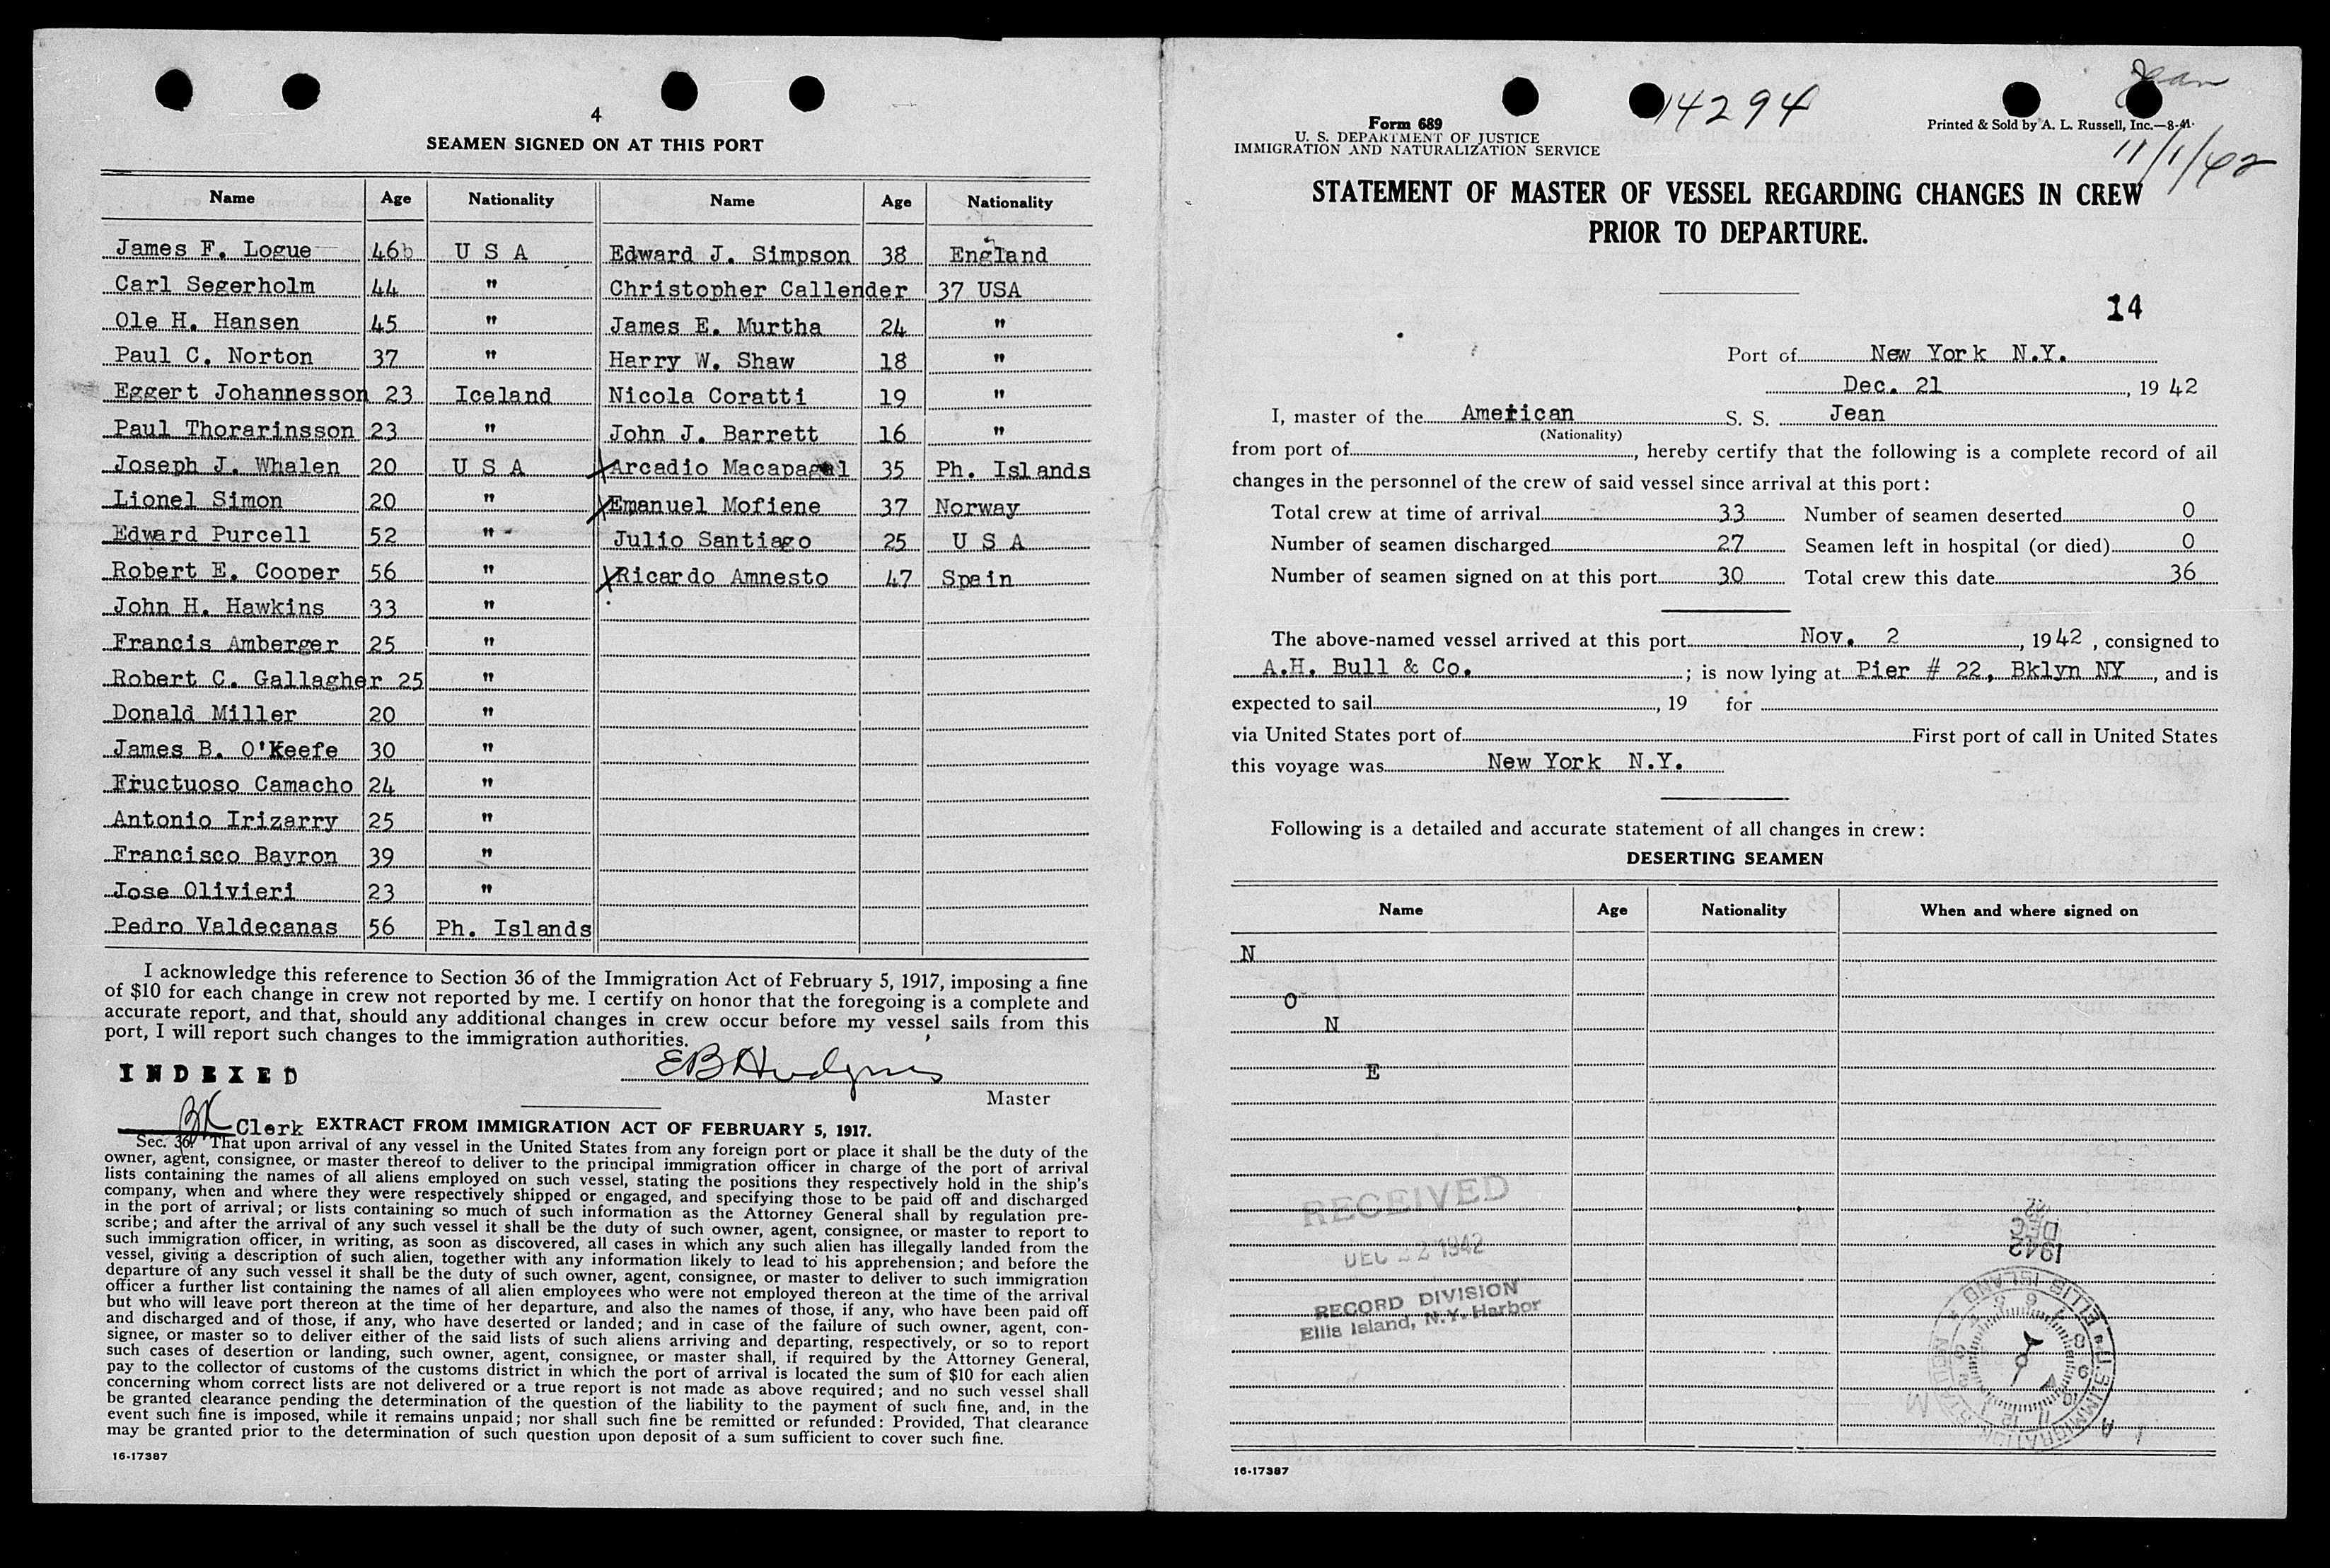 4
SEAMEN SIGNED ON AT THIS PORT
Name Age Nationality Name Age Nationality
James F. Logue 46 U S A Edward J. Simpson 38 England
Carl Segerholm 44 " Christopher Callender 37 USA
Ole H. Hansen 45 " James E. Murtha 24 "
Paul C. Norton 37 " Harry W. Shaw 18 "
Eggert Johannesson 23 Iceland Nicola Coratti 19 "
Paul Thorarinsson 23 " John J. Barrett 16 "
Joseph J. Whalen 20 U S A Arcadio Macapagal 35 Ph. Islands
Lionel Simon 20 " Emanuel Mofiene 37 Norway
Edward Purcell 52 " Julio Santiago 25 U S A
Robert E. Cooper 56 " Ricardo Amnesto 47 Spain
John H. Hawkins 33 "
Francis Amberger 25 "
Robert C. Gallagher 25 "
Donald Miller 20 "
James B. O'Keefe 30 "
Fructuoso Camacho 24 "
Antonio Irizarry 25 "
Francisco Bayron 39 "
Jose Olivieri 23 "
Pedro Valdecanas 56 Ph. Islands
I acknowledge this reference to Section 36 of the Immigration Act of February 5, 1917, imposing a fine
of $10 for each change in crew not reported by me. I certify on honor that the foregoing is a complete and
accurate report, and that, should any additional changes in crew occur before my vessel sails from this
port, I will report such changes to the immigration authorities.
INDEXED
EB Hudgins
Master
BK Clerk EXTRACT FROM IMMIGRATION ACT OF FEBRUARY 5, 1917.
Sec. 36. That upon arrival of any vessel in the United States from any foreign port or place it shall be the duty of the
owner, agent, consignee, or master thereof to deliver to the principal immigration officer in charge of the port of arrival
lists containing the names of all aliens employed on such vessel, stating the positions they respectively hold in the ship's
company, when and where they were respectively shipped or engaged, and specifying those to be paid off and discharged
in the port of arrival; or lists containing so much of such information as the Attorney General shall by regulation pre-
scribe; and after the arrival of any such vessel it shall be the duty of such owner, agent, consignee, or master to report to
such immigration officer, in writing, as soon as discovered, all cases in which any such alien has illegally landed from the
vessel, giving a description of such alien, together with any information likely to lead to his apprehension; and before the
departure of any such vessel it shall be the duty of such owner, agent, consignee, or master to deliver to such immigration
officer a further list containing the names of all alien employees who were not employed thereon at the time of the arrival
but who will leave port thereon at the time of her departure, and also the names of those, if any, who have been paid off
and discharged and of those, if any, who have deserted or landed; and in case of the failure of such owner, agent, con-
signee, or master so to deliver either of the said lists of such aliens arriving and departing, respectively, or so to report
such cases of desertion or landing, such owner, agent, consignee, or master shall, if required by the Attorney General,
pay to the collector of customs of the customs district in which the port of arrival is located the sum of $10 for each alien
concerning whom correct lists are not delivered or a true report is not made as above required; and no such vessel shall
be granted clearance pending the determination of the question of the liability to the payment of such fine, and, in the
event such fine is imposed, while it remains unpaid; nor shall such fine be remitted or refunded: Provided, That clearance
may be granted prior to the determination of such question upon deposit of a sum sufficient to cover such fine.
16-17387
Jean
14294
11/1/42
Form 689
U. S. DEPARTMENT OF JUSTICE
IMMIGRATION AND NATURALIZATION SERVICE
Printed & Sold by A. L. Russell, Inc.—8-41.
STATEMENT OF MASTER OF VESSEL REGARDING CHANGES IN CREW
PRIOR TO DEPARTURE.
14
Port of New York N.Y.
Dec. 21, 1942
I, master of the American S. S. Jean
(Nationality)
from port of, hereby certify that the following is a complete record of all
changes in the personnel of the crew of said vessel since arrival at this port:
Total crew at time of arrival 33 Number of seamen deserted 0
Number of seamen discharged 27 Seamen left in hospital (or died) 0
Number of seamen signed on at this port 30 Total crew this date 36
The above-named vessel arrived at this port Nov. 2, 1942, consigned to
A.H. Bull & Co.; is now lying at Pier # 22, Bklyn NY, and is
expected to sail, 19 for
via United States port of First port of call in United States
this voyage was New York N.Y.
Following is a detailed and accurate statement of all changes in crew:
DESERTING SEAMEN
Name Age Nationality When and where signed on
N
O
N
E
RECEIVED
DEC 22 1942
RECORD DIVISION
Ellis Island, N.Y. Harbor
22
DEC
1942
U.S. IMMIGRATION
ELLIS ISLAND
16-17387